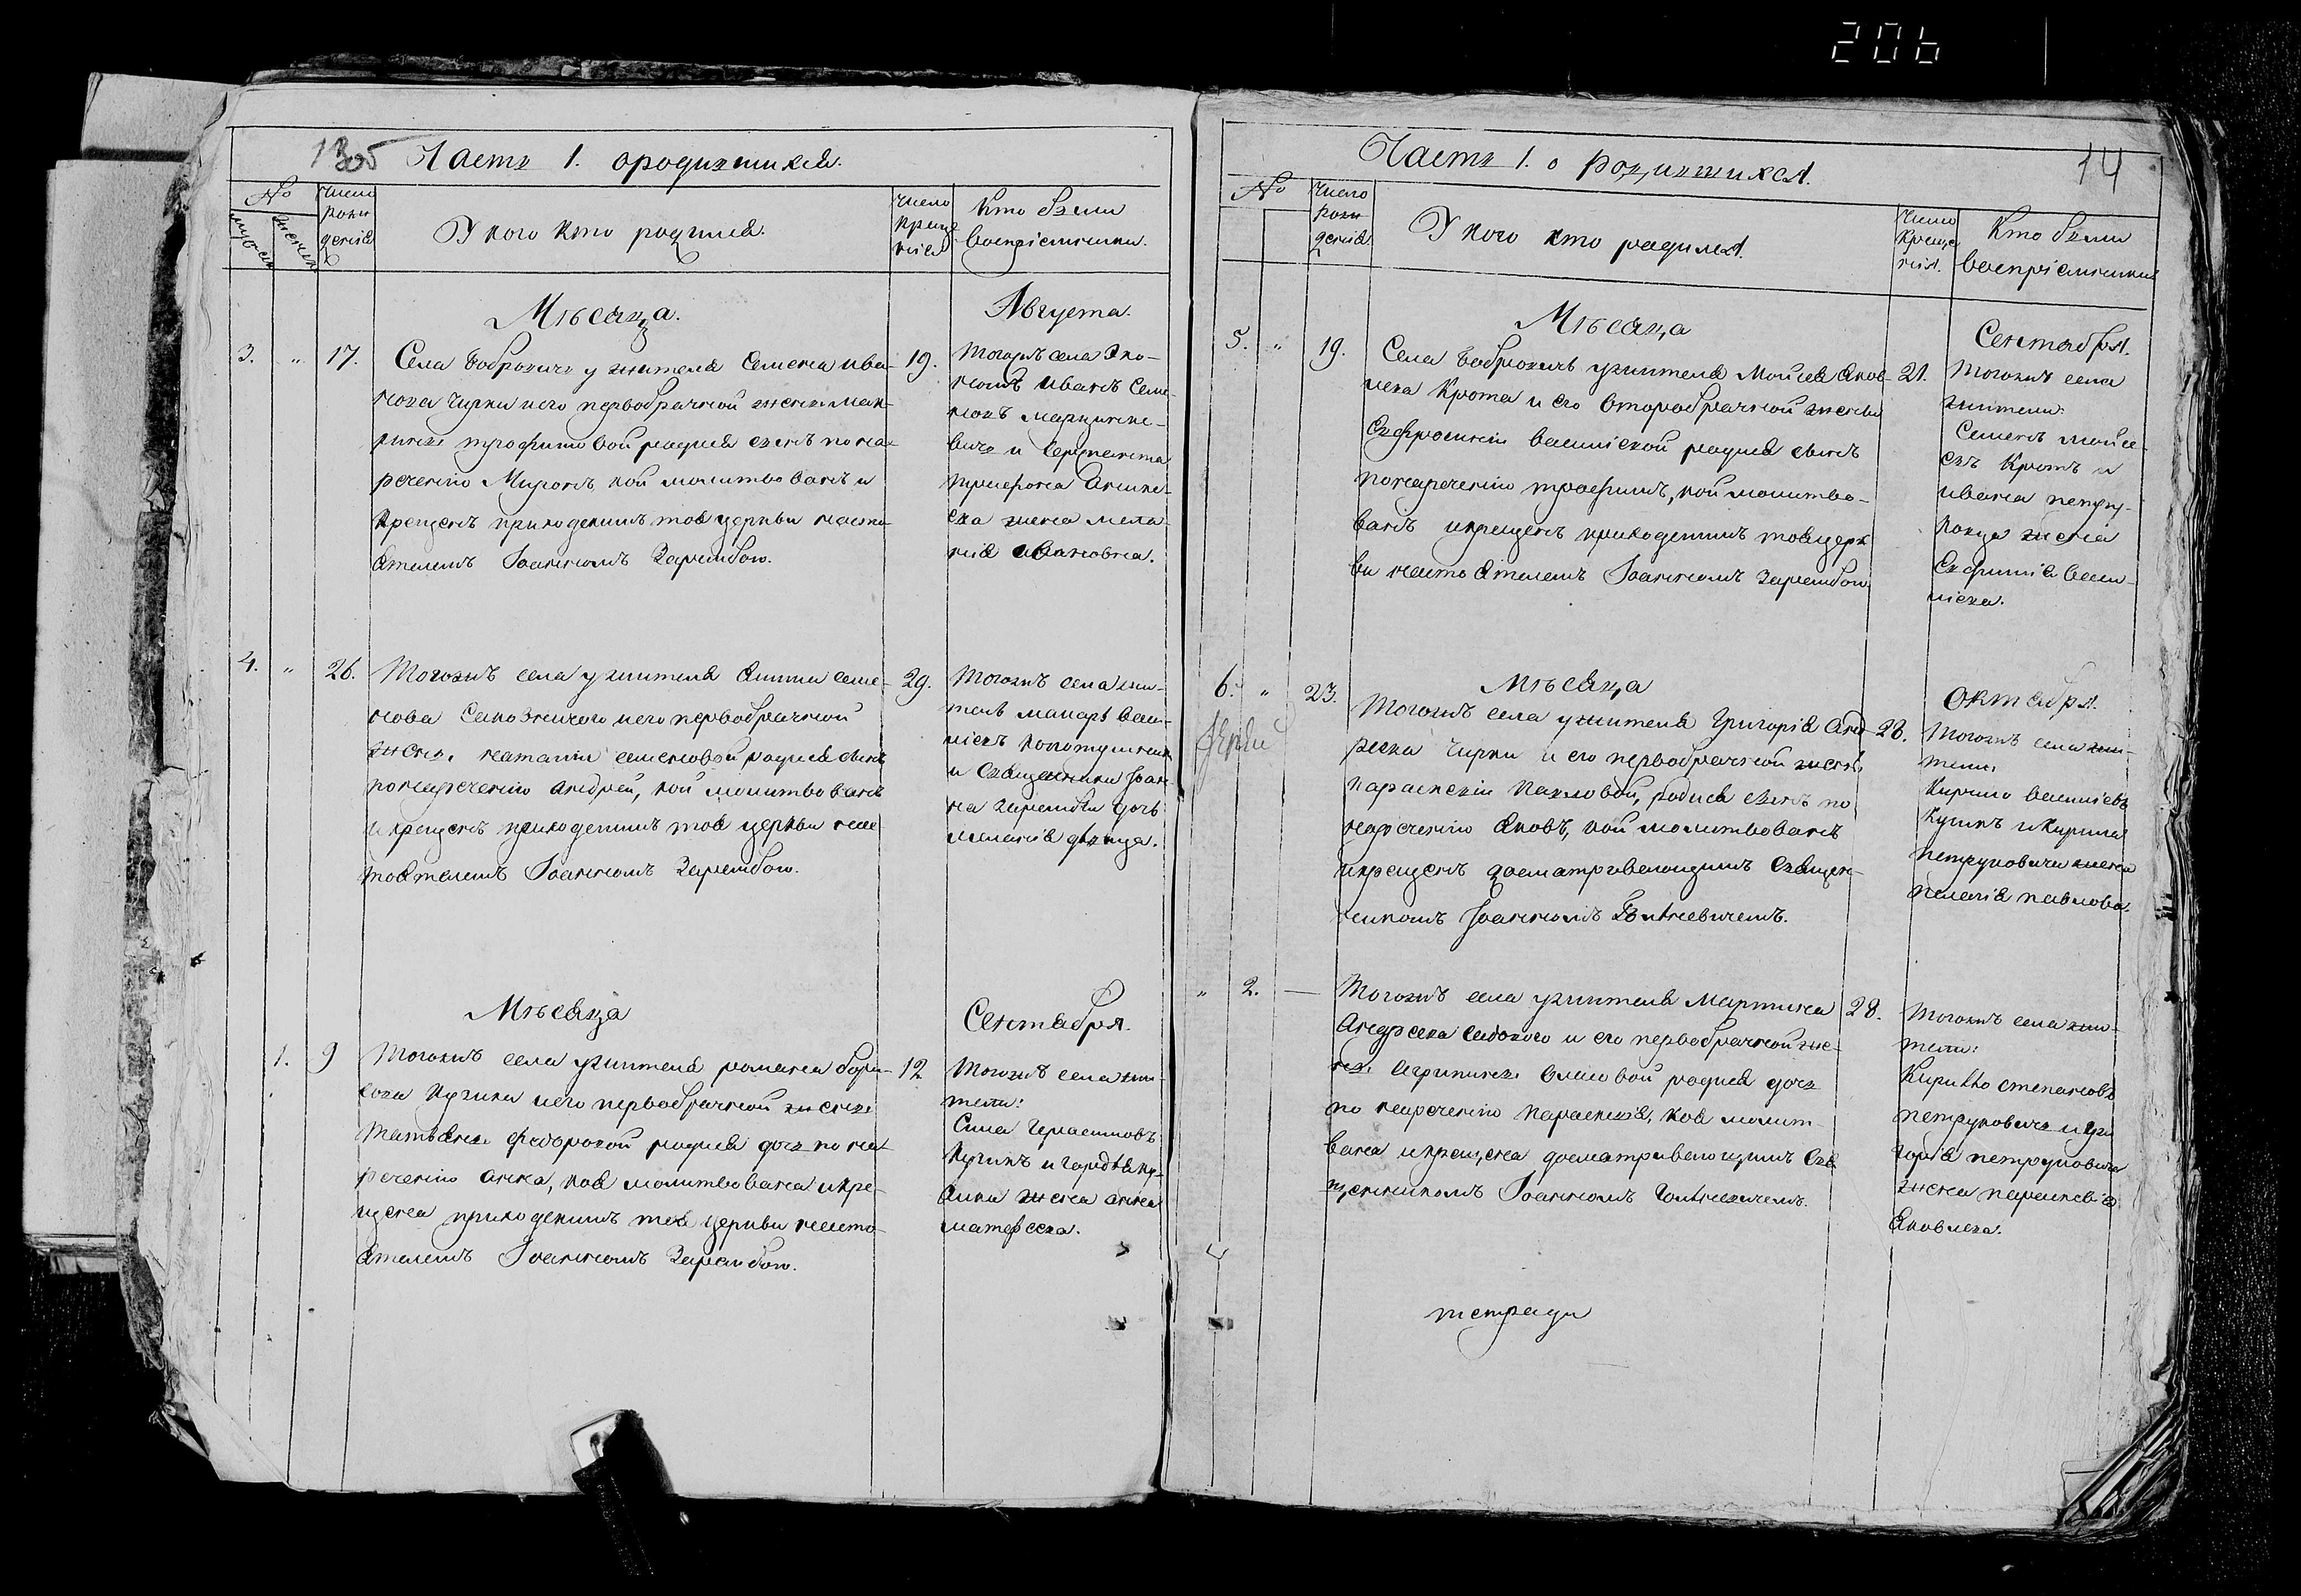 206
13об Часть 1. о родившихся.
№
мужеск
женск
Число
рожд
денія
У кого кто родился.
Число
креще
нія
Кто были
воспріемники.
Мѣсяца.
Августа.
3.
"
17.
Села Бобровичь у жителя Семена Ива-
нова Чирки и его первобрачной жены Мак-
рины Трофимовой родился сынъ по на-
реченію Миронъ, кой молитвованъ и
крещенъ приходскимъ тоя церкви насто-
ятелемъ Іоанномъ Зарембою.
19.
Тогожъ села Эко-
номъ Иванъ Семе-
новъ
вичъ и
Трифона
жена Мела-
нія Ивановна.
4.
"
26.
Тогожъ села у жителя Семе-
нова его первобрачной
жены Наталіи Семеновой родился сынъ
по нареченію Андрей, кой молитвованъ
и крещенъ приходскимъ тоя церкви нас
тоятелемъ Іоанномъ Зарембою.
29.
Тогожъ села жи-
тель Макарѣ Васи-
ліевъ
и Священника Іоан
на Зарембы дочь
Меланія дѣвица.
Мѣсяца
Сентября.
1.
9
Тогожъ села у жителя Романа Бори-
сова Кулика и его первобрачной жены
Татьяны Федоровой родилась дочь по на-
реченію Анна, коя молитвована и кре-
щена приходскимъ тоя церкви насто-
ятелемъ Іоанномъ Зарембою.
12
Тогожъ села жи-
тели:
Сила Герасимовъ
Куликъ и Гордѣя Ку-
лика жена Анна
Матфеева.
Часть 1. о родившихся.
14
№
Число
рожд
денія
У кого кто родился.
Число
Креще
нія.
Кто были
Воспріемники
Мѣсяца
Сентября.
5.
"
19.
Села Бобровичь у жителя Мойсея Яков-
лева Крота и его второбрачной жены
Евфросиніи Василіевой родился сынъ
по нареченію Трофимъ, кой молитво-
ванъ и крещенъ приходскимъ тоя церк
ви настоятелемъ Іоанномъ Зарембою
21.
Тогожъ села
жители:
Семенъ Мойсе-
евъ Кротъ и
Ивана Петру-
жена
Евфимія Васи-
ліева.
Мѣсяца
Октября.
6.
"
23.
Тогожъ села у жителя Григорія Анд-
реева Чирки и его первобрачной жены
Параскевіи Павловой, родился сынъ по
нареченію Яковъ, кой молитвованъ
и крещенъ досматривающимъ Священ-
никомъ Іоанномъ Гвитневичемъ.
28.
Тогожъ села жи-
тели:
Кирило Василіевъ
Куликъ и Кирила
Петруковича жена
Пелагія Павлова.
"
2.
—
Тогожъ села у жителя Мартина
Андреева и его первобрачной же-
ны Агрипины родилась дочь
по нареченію Параскевія, коя молит-
вана и крещена досматривающимъ Свя
щенникомъ Іоанномъ Гвитневичемъ.
28.
Тогожъ села жи-
тели:
Степановъ
Петруковичъ и Гри
горія Петруковича
жена Параскевія
Яковлева.
тетради